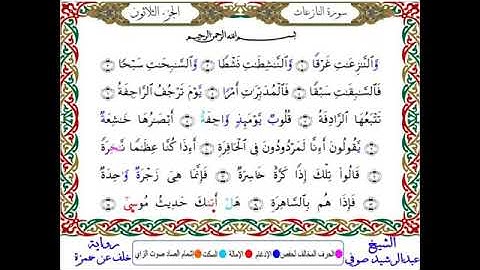 سورة النازعات
الجزء الثلاثون
بسم الله الرحمن الرحيم
وَٱلنَّٰزِعَٰتِ غَرْقًا وَٱلنَّٰشِطَٰتِ نَشْطًا وَٱلسَّٰبِحَٰتِ سَبْحًا
فَٱلسَّٰبِقَٰتِ سَبْقًا فَٱلْمُدَبِّرَٰتِ أَمْرًا يَوْمَ تَرْجُفُ ٱلرَّاجِفَةُ
تَتْبَعُهَا ٱلرَّادِفَةُ قُلُوبٌ يَوْمَئِذٍ وَاجِفَةٌ أَبْصَٰرُهَا خَٰشِعَةٌ
يَقُولُونَ أَءِنَّا لَمَرْدُودُونَ فِى ٱلْحَافِرَةِ أَءِذَا كُنَّا عِظَٰمًا نَّٰخِرَةً
قَالُوا۟ تِلْكَ إِذًا كَرَّةٌ خَاسِرَةٌ فَإِنَّمَا هِىَ زَجْرَةٌ وَٰحِدَةٌ
فَإِذَا هُم بِٱلسَّاهِرَةِ هَلْ أَتَىٰكَ حَدِيثُ مُوسَىٰٓ
الشيخ
عبدالرشيد صوفي
الحرف المخالف لحفص الإدغام الإمالة السكت إشمام الصاد صوت الزاي
رواية
خلف عن حمزة